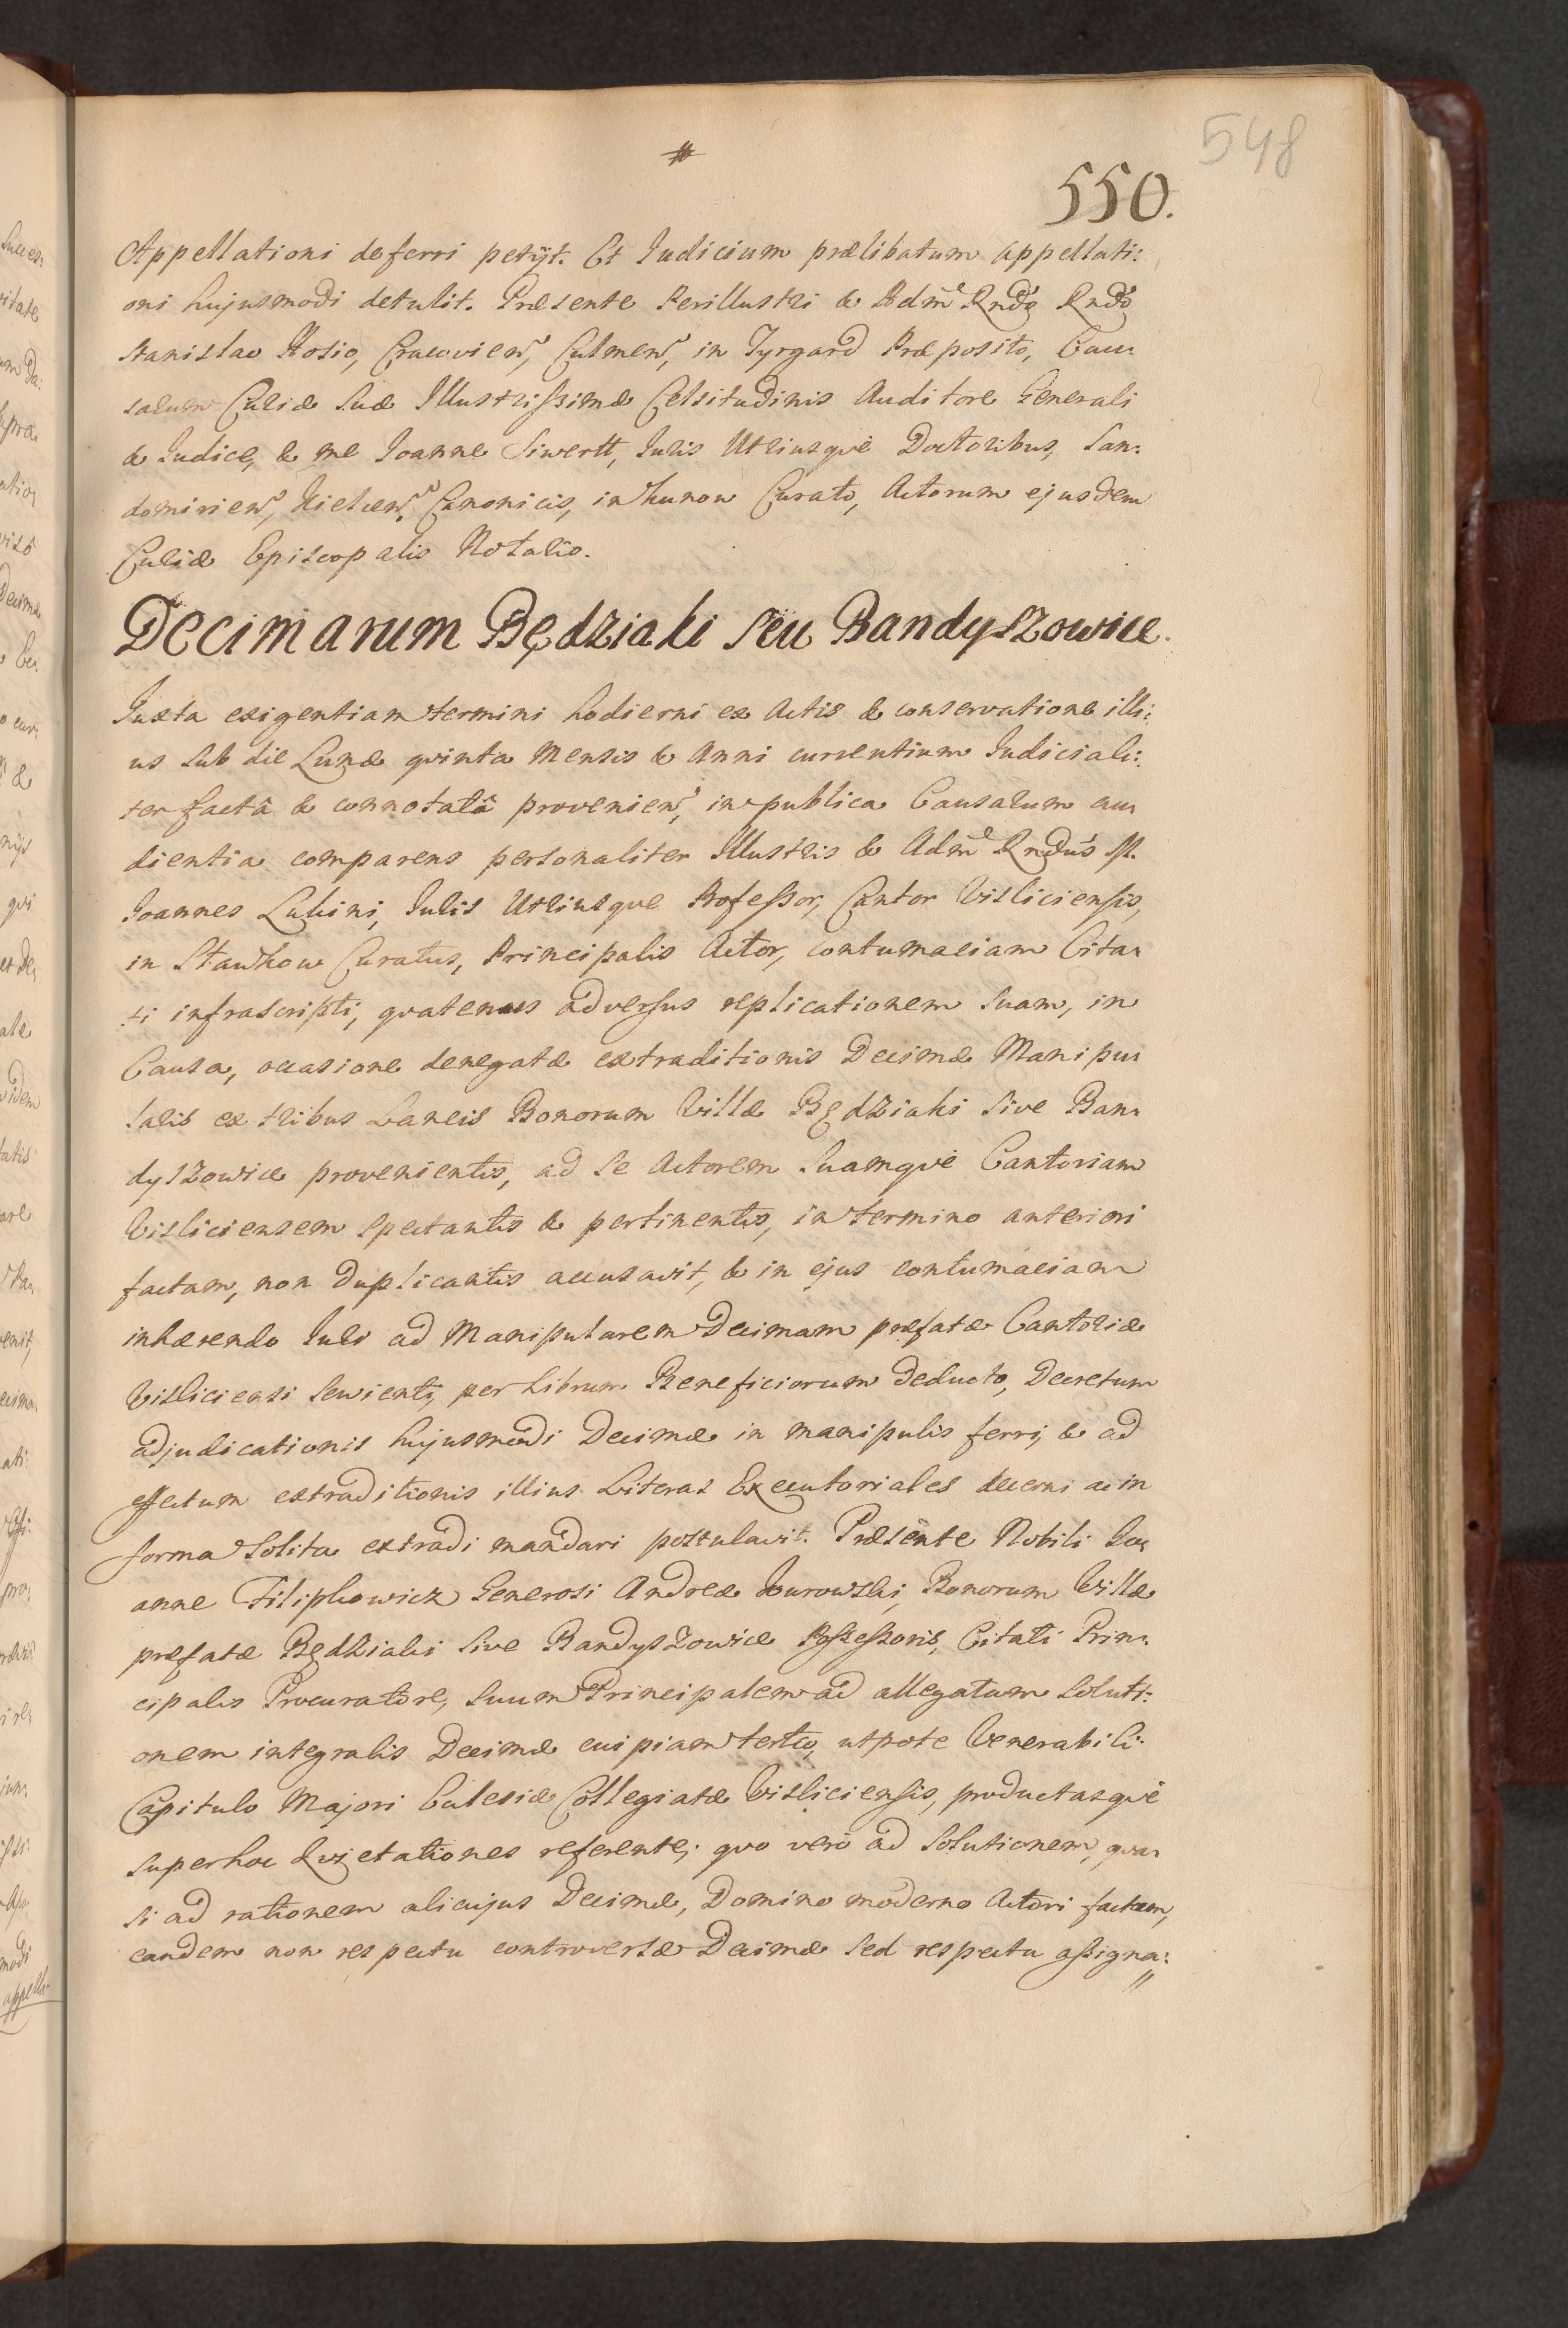 548
#
550.
Appellationi deferri petijt. Et Iudicium prælibatum appellati:
oni hujusmodi detulit. Præsente Perillustri & Adm Rndo Rndo
Stanislao Hosio, Cracovien, Culmen, in Tyrgard Præposito, Cau:
sarum Curiæ Suæ Illustrissimæ Celsitudinis Auditore Generali
& Iudice, & me Ioanne Siwertt, Iuris Utriusque Doctoribus, San:
domirien, Kielcen, Canonicis, in Kunow Curato, Actorum ejusdem
Curiæ Episcopalis Notario.
Decimarum Będziaki seu Bandyszowice.
Iuxta exigentiam termini hodierni ex Actis & conservatione illi:
us sub die Lunæ qvinta Mensis & Anni currentium Iudiciali:
ter factâ & connotatâ provenien, in publica Causarum au:
dientia comparens personaliter Illustris & Adm Rndus
Ioannes Lukini, Iuris Utriusque Professor, Cantor Visliciensis,
in Stawkow Curatus, Principalis Actor, contumaciam Cita:
ti infrascripti, qvatenus adversus replicationem suam, in
Causa, occasione denegatæ extraditionis Decimæ Manipu:
laris ex tribus Laneis Bonorum Villæ Będziaki sive Ban:
dyszowice provenientis, ad se Actorem suamqve Cantoriam
Visliciensem spectantis & pertinentis, in termino anteriori
factam, non duplicantis accusavit, & in ejus contumaciam
inhærendo Iuri ad Manipularem Decimam præfatæ Cantoriæ
Visliciensi servienti, per Librum Beneficiorum deducto, Decretum
adjudicationis hujusmodi Decimæ in manipulis ferri, & ad
effectum extraditionis illius Literas Executoriales decerni ac in
forma solita extradi mandari postulavit. Præsente Nobili Io:
anne Filipkowicz Generosi Andreæ Burowski, Bonorum Villæ
præfatæ Będziaki sive Bandyszowice Possessoris, Citati Prin:
cipalis Procuratore, suum Principalem ad allegatam soluti:
onem integralis Decimæ cuipiam tertio, utpote Venerabili:
Capitulo Majori Ecclesiæ Collegiatæ Visliciensis, productasqve
super hoc Qvietationes referente, quo vero ad Solutionem, qva:
si ad rationem alicujus Decimæ, Domino moderno Actori factam,
eandem non respectu controversæ Decimæ sed respectu assigna: